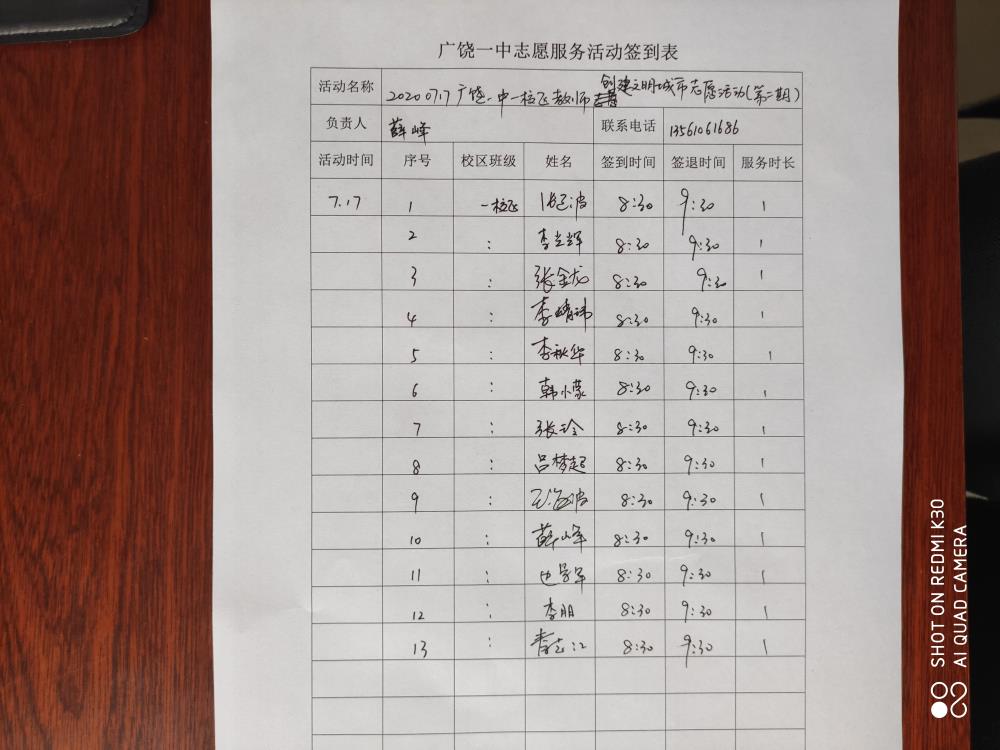 广饶一中志愿服务活动签到表
活动名称 20200717广饶一中一校区教师创建文明城市志愿活动(第二期)
负责人 薛峰 联系电话 13561061686
活动时间 序号 校区班级 姓名 签到时间 签退时间 服务时长
7.17 1 一校区 8:30 9:30 1
2 : 李光辉 8:30 9:30 1
3 : 张金龙 8:30 9:30 1
4 : 李靖祎 8:30 9:30 1
5 : 李秋华 8:30 9:30 1
6 : 韩小蒙 8:30 9:30 1
7 : 张玲 8:30 9:30 1
8 : 吕梦超 8:30 9:30 1
9 : 王海波 8:30 9:30 1
10 : 薛峰 8:30 9:30 1
11 : 8:30 9:30 1
12 : 李朋 8:30 9:30 1
13 : 8:30 9:30 1
SHOT ON REDMI K30
AI QUAD CAMERA